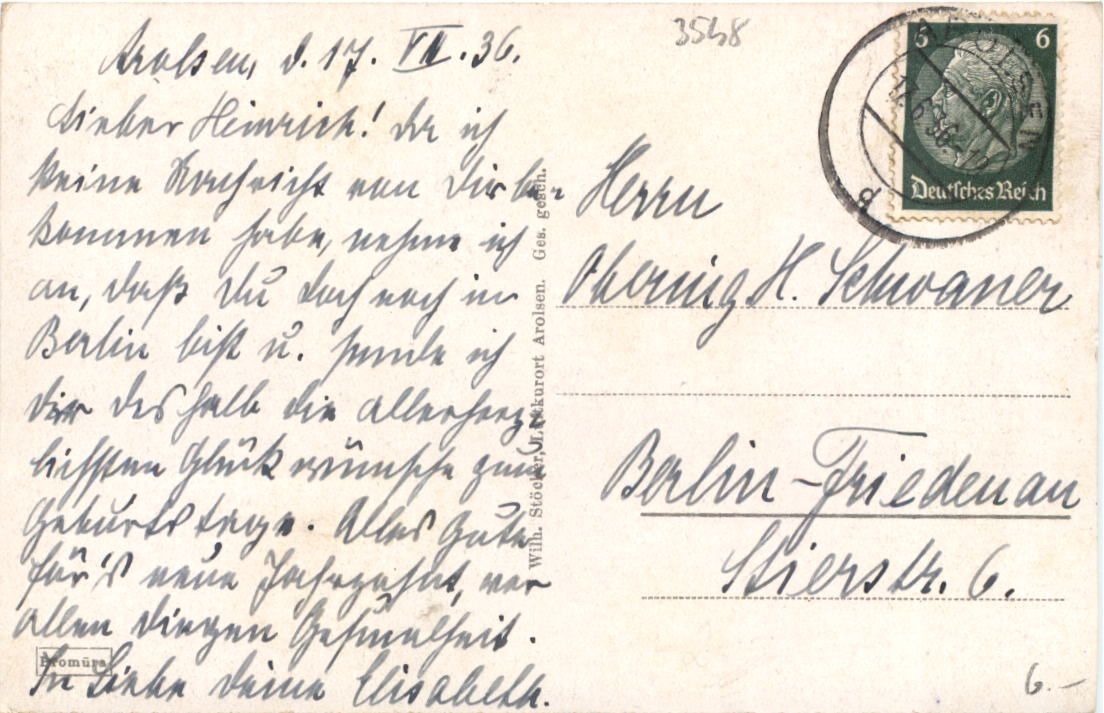 3548
Arolsen, d. 17. VI. 36.
Lieber Heinrich! Da ich
keine Nachricht von Dir be-
kommen habe, nehme ich
an, daß Du doch noch in
Berlin bist u. sende ich
Dir deshalb die allerherz-
lichsten Glückwünsche zum
Geburtstage. Alles Gute
für's neue Jahrzehnt, vor
allen Dingen Gesundheit.
In Liebe Deine Elisabeth.
Bromüra
Wilh. Stöcker, Luftkurort Arolsen. Ges. gesch.
5 6
Deutsches Reich
AROLSEN
17.6.36.
Herrn
Obering H. Schwaner
Berlin-Friedenau
Stierstr. 6.
6.-